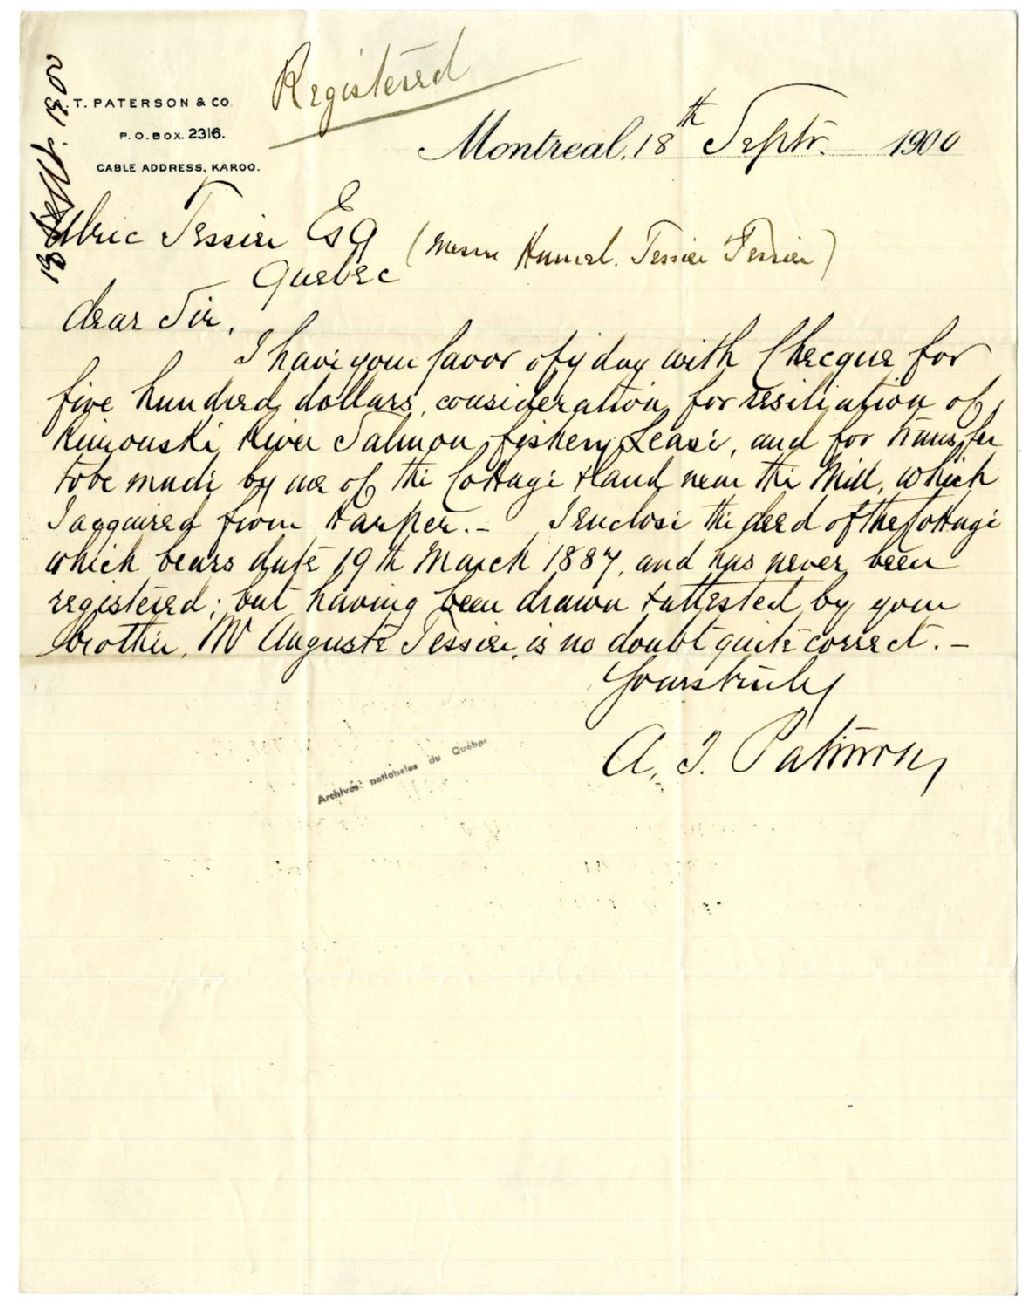 Registered
. T. PATERSON & CO.
P.O. BOX. 2316.
CABLE ADDRESS, KAROO.
18 Sept. 1900
Montreal, 18th Septr. 1900
Ulric Tessier Esq (Messrs Hunnel. Tessier Tessier)
Quebec
dear Sir,
I have your favor of yday with Checque for
five hundred dollars, consideration for resiliation of
Rimouski River Salmon fishery Lease, and for transfer
to be made by me of the Cottage & land near the Mill, which
I aqquired from Harper. – I enclose the deed of the Cottage
which bears date 19th March 1887, and has never been
registered; but having been drawn & attested by your
brother, Mr Auguste Tessier, is no doubt quite correct. –
Yours truly
A. T. Paterson
Archives nationales du Québec